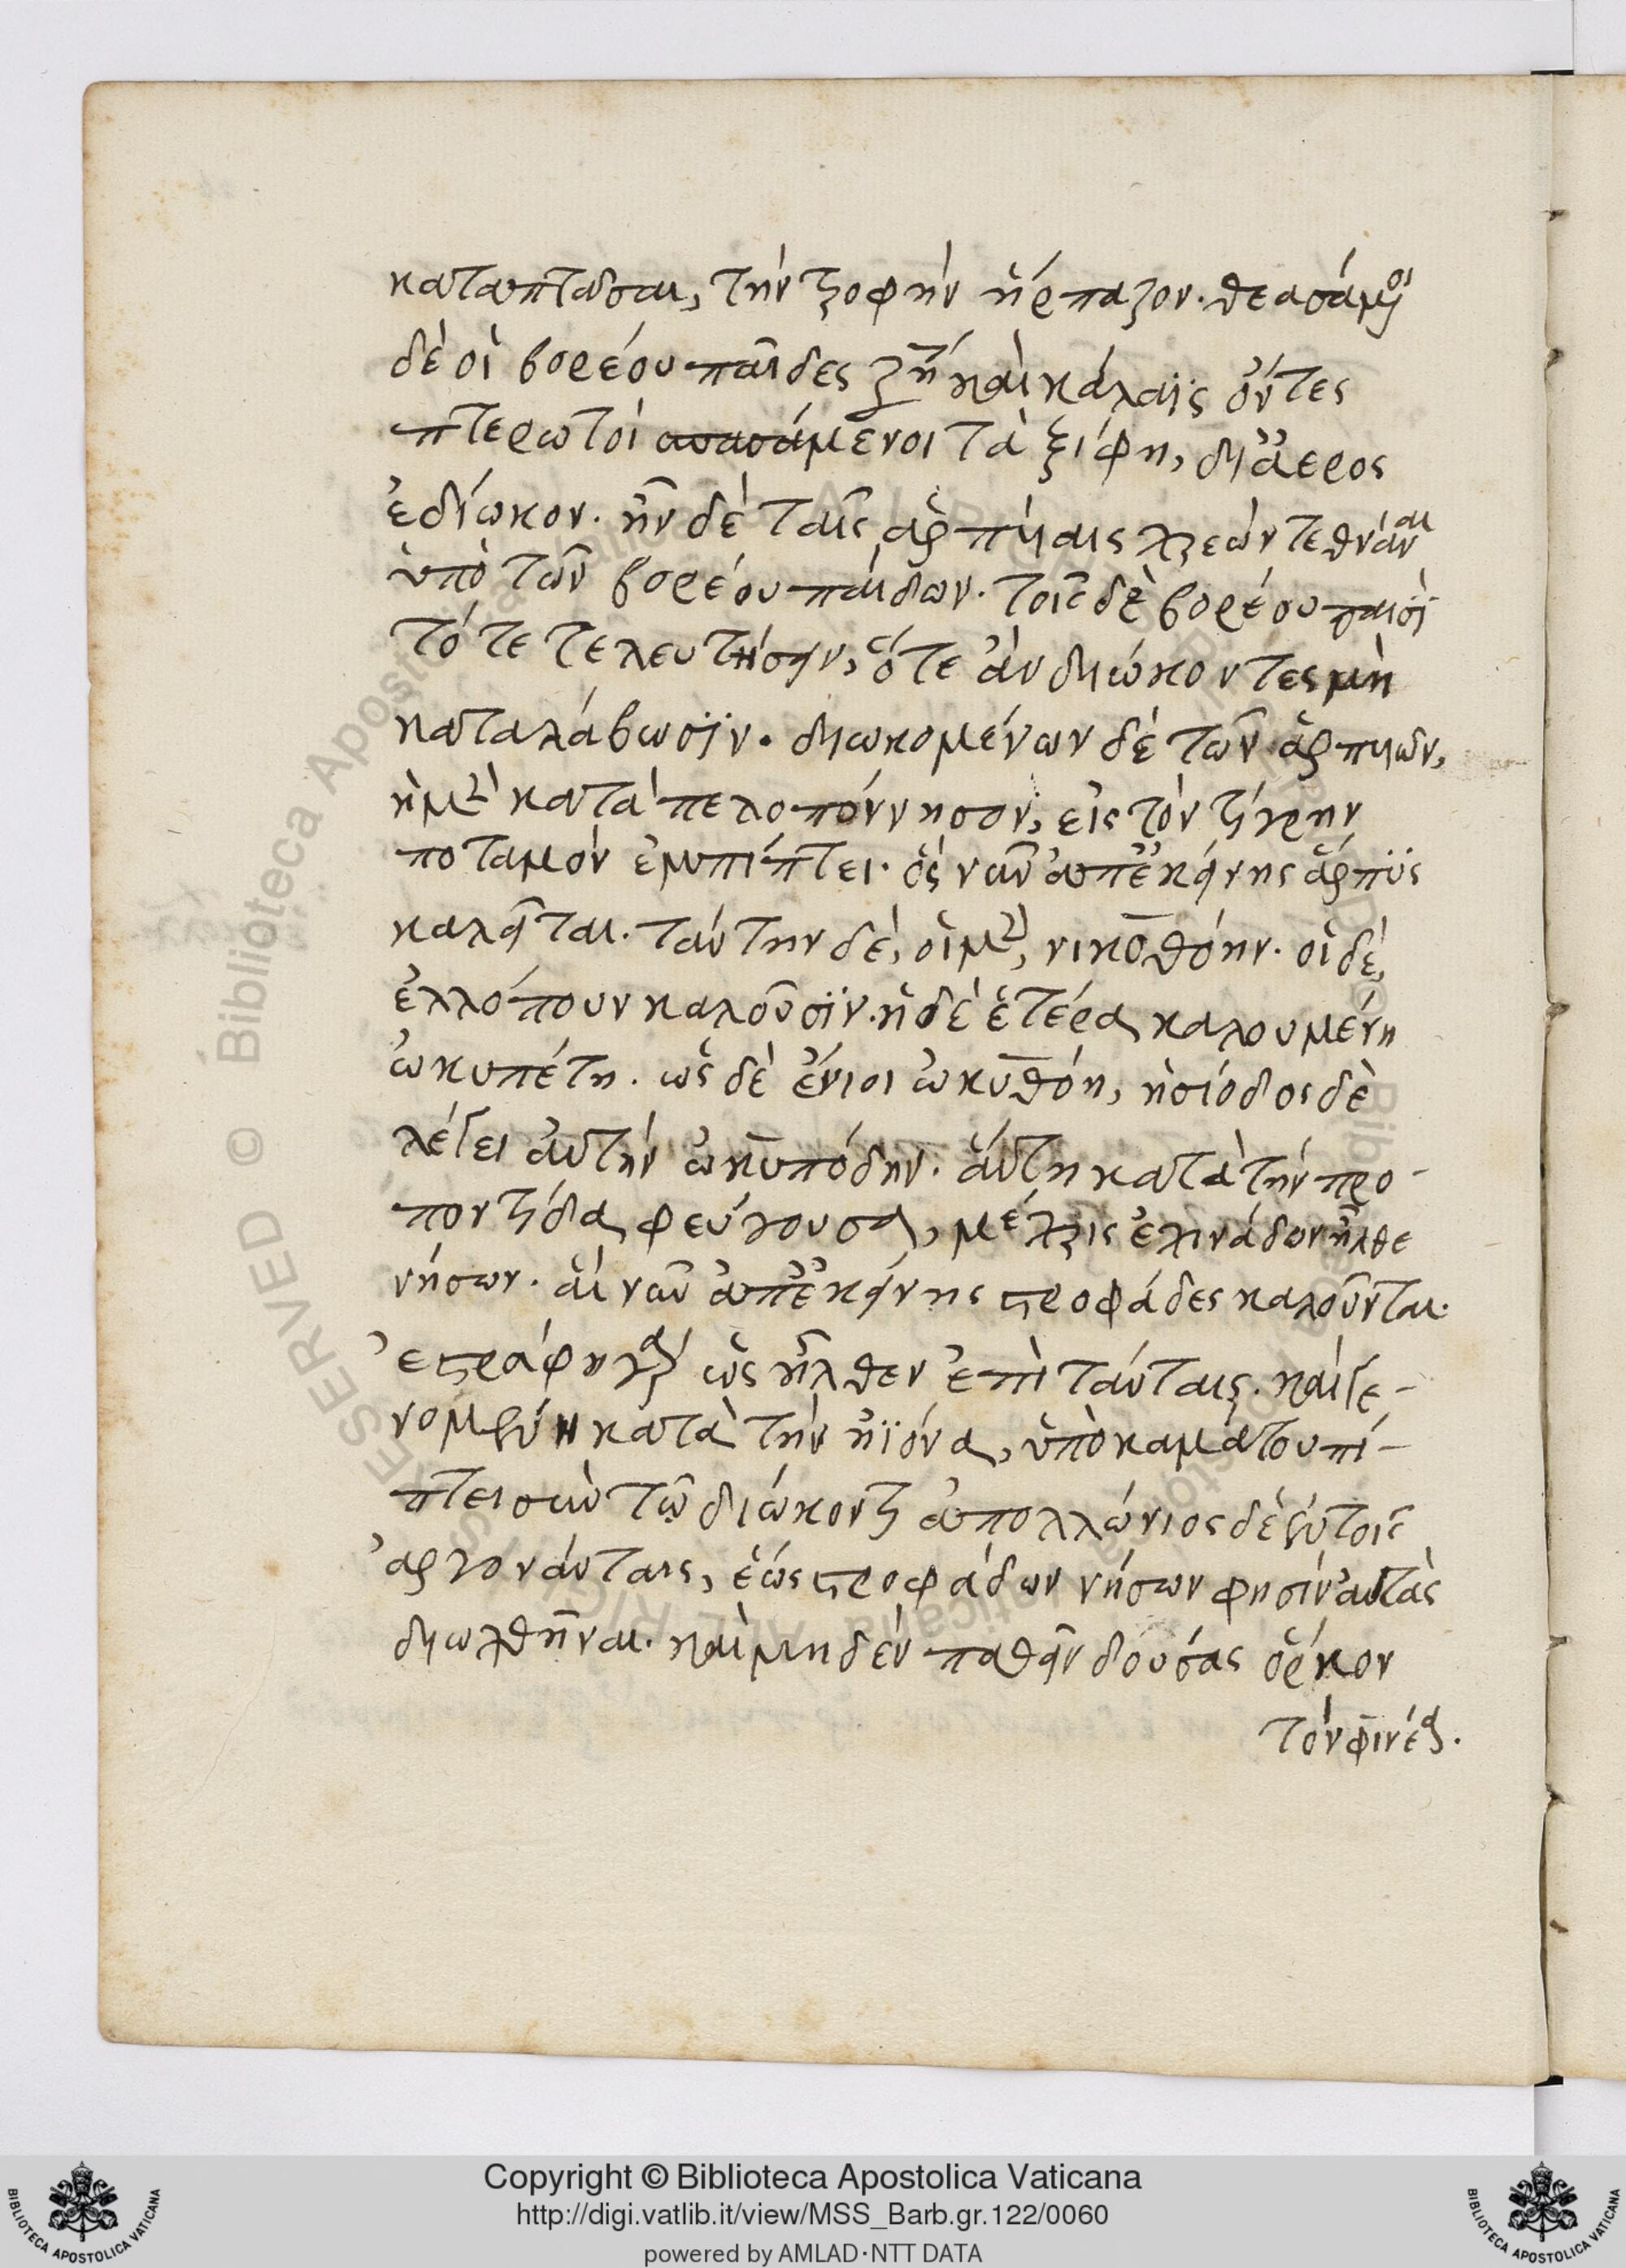 καταπτᾶσαι, τὴν τροφὴν ἥρπαζον. θεασάμενοι
δὲ οἱ βορέου παῖδες ζήτης καὶ κάλαϊς ὄντες
πτερωτοὶ σπασάμενοι τὰ ξίφη, δι ἀέρος
ἐδίωκον. ἦν δὲ ταῖς ἁρπυίαις χρεὼν τεθνάναι
ὑπὸ τῶν βορέου παίδων. τοῖς δὲ βορέου παισὶ
τότε τελευτήσειν, ὅτε ἂν διώκοντες μὴ
καταλάβωσϊν. διωκομένων δὲ τῶν ἁρπυιῶν,
ἡ μὲν κατὰ πελοπόννησον, εἰς τὸν τίγρην
ποταμὸν ἐμπίπτει. ὃς νῦν ἀπ ἐκείνης ἅρπυς
καλεῖται. ταύτην δὲ, οἱ μὲν, νικοθόην. οἱ δὲ,
ἑλλόπουν καλοῦσϊν. ἡ δὲ ἑτέρα καλουμένη
ὠκυπέτη. ὡς δὲ ἔνιοι ὠκυθόη, ἡσίοδος δὲ
λέγει αὐτὴν ὠκυπόδην. αὕτη κατὰ τὴν προ-
ποντίδα φεύγουσα, μέχρις ἐχινάδων ἦλθε
νήσων. αἳ νῦν ἀπ ἐκείνης στροφάδες καλοῦνται.
ἐστράφη γὰρ ὡς ἦλθεν ἐπὶ ταύταις. καὶ γε-
νομένη κατὰ τὴν ἠϊόνα, ὑπὸ καμάτου πί-
πτει σὺν τῷ διώκοντι ἀπολλώνιος δὲ ἐν τοῖς
ἀργοναύταις, ἕως στροφάδων νήσων φησὶν αὐτὰς
διωχθῆναι. καὶ μηδὲν παθεῖν δούσας ὅρκον
τὸν φινέα.
Copyright © Biblioteca Apostolica Vaticana
http://digi.vatlib.it/view/MSS_Barb.gr.122/0060
powered by AMLAD·NTT DATA